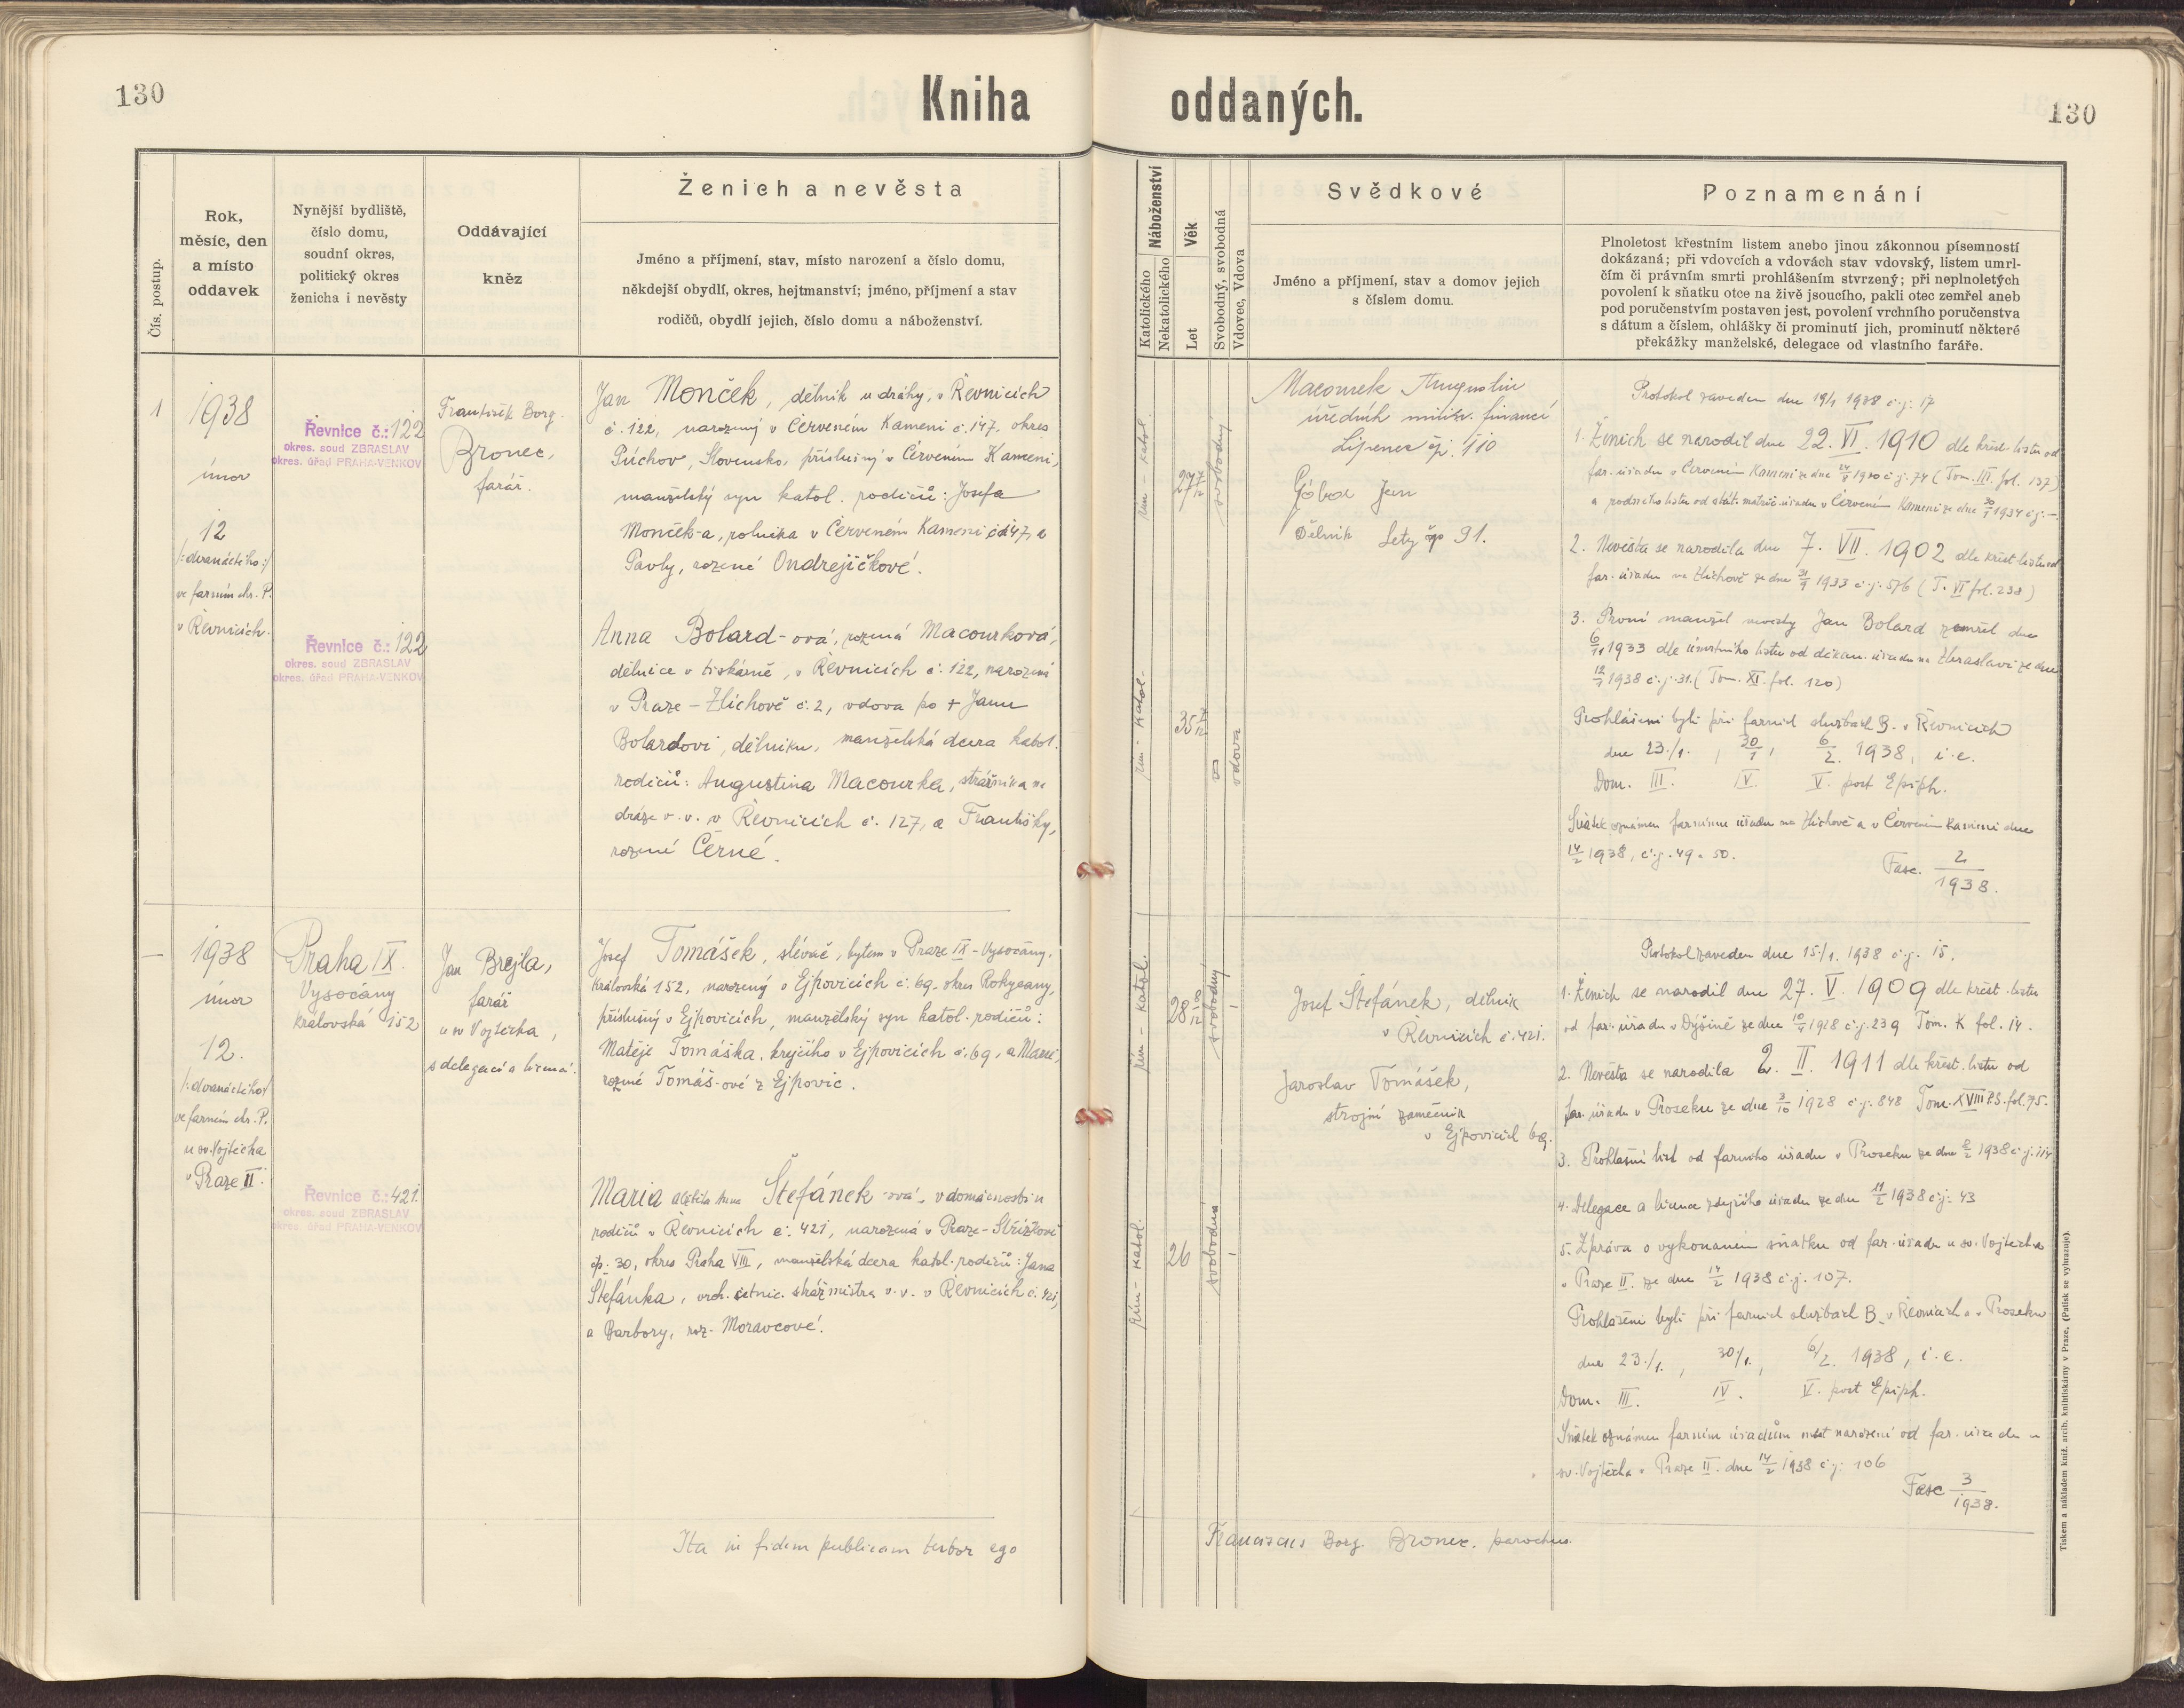 130
Kniha oddaných.
130
Čís. postup.
Rok,
měsíc, den
a místo
oddavek
Nynější bydliště,
číslo domu,
soudní okres,
politický okres
ženicha i nevěsty
Oddávající
kněz
Ženich a nevěsta
Jméno a příjmení, stav, místo narození a číslo domu,
někdejší obydlí, okres, hejtmanství; jméno, příjmení a stav
rodičů, obydlí jejich, číslo domu a náboženství.
Náboženství
Katolického
Nekatolického
Věk
Let
Svobodný, svobodná
Vdovec, Vdova
Svědkové
Jméno a příjmení, stav a domov jejich
s číslem domu.
Poznamenání
Plnoletost křestním listem anebo jinou zákonnou písemností
dokázaná; při vdovcích a vdovách stav vdovský, listem umrl-
čím či právním smrti prohlášením stvrzený; při neplnoletých
povolení k sňatku otce na živě jsoucího, pakli otec zemřel aneb
pod poručenstvím postaven jest, povolení vrchního poručenstva
s dátum a číslem, ohlášky či prominutí jich, prominutí některé
překážky manželské, delegace od vlastního faráře.
1
1938
únor
12
/:dvanáctého:/
ve farním chr. P.
v Řevnicích.
Řevnice č.: 122
okres. soud ZBRASLAV
okres. úřad PRAHA-VENKOV
Řevnice č.: 122
okres. soud ZBRASLAV
okres. úřad PRAHA-VENKOV
František Borg.
Bronec,
farář.
Jan Monček, dělník u dráhy, v Řevnicích
č. 122, narozený v Červeném Kameni č. 147, okres
Púchov, Slovensko, příslušný v Červeném Kameni,
manželský syn katol. rodičů: Josefa
Monček-a, rolníka v Červeném Kameni č. 147, a
Pavly, rozené Ondrejičkové.
Anna Bolard-ová, rozená Macourková,
dělnice v tiskárně, v Řevnicích č. 122, narozená
v Praze - Zlíchově č. 2, vdova po + Janu
Bolardovi, dělníku, manželská dcera katol.
rodičů: Augustina Macourka, strážníka na
dráze v. v. v Řevnicích č. 127, a Františky,
rozené Černé.
řím - katol.
27 7/12
svobodný
řím - katol.
35
vdova
Macourek Augustin
úředník minist. financí
Lipenec čp. 110
Jan
Dělník Lety čp 91.
Protokol zaveden dne 19/1 1938 č.j. 17
1. Ženich se narodil dne 22. VI. 1910 dle křest. listu od
far. úřadu v Červeném Kameni ze dne 1930 č.j. 74 (Tom. III. fol. 137)
a rodného listu od stát. matrič. úřadu v Červeném Kameni ze dne 30/1 1934 č.j. -
2. Nevěsta se narodila dne 7. VII. 1902 dle křest. listu od
far. úřadu na Zlíchově ze dne 1933 č.j. 576 (T. VI fol. 238)
3. První manžel nevěsty Jan Bolard zemřel dne
6/11 1933 dle úmrtního listu od děkan. úřadu na Zbraslavi ze dne
12/1 1938 č.j. 31. (Tom. XI. fol. 120)
Prohlášeni byli při farních službách B. v Řevnicích
dne 23./1. , 30/1 , 6/2. 1938, i. e.
Dom. III. IV. V. post Epiph.
Sňatek oznámen farnímu úřadu na Zlíchově a v Červeném Kameni dne
14/2 1938, č.j. 49 a 50.
Fasc. 2/1938.
—
1938
únor
12.
/:dvanáctého/
ve farním chr. P.
u sv. Vojtěcha
v Praze II.
Praha IX.
Vysočany
Královská 152
Řevnice č.: 421.
okres. soud ZBRASLAV
okres. úřad PRAHA-VENKOV
Jan Brejla,
farář
u sv. Vojtěcha,
s delegací a licencí.
Josef Tomášek, slévač, bytem v Praze IX - Vysočany,
Královská 152, narozený v Ejpovicích č. 69. okres Rokycany,
příslušný v Ejpovicích, manželský syn katol. rodičů:
Matěje Tomáška, krejčího v Ejpovicích č. 69, a Marie,
rozené Tomáš-ové z Ejpovic.
Maria Štefánek-ová, v domácnosti u
rodičů v Řevnicích č. 421, narozená v Praze - Střížkově
čp. 30, okres Praha VIII, manželská dcera katol. rodičů: Jana
Štefánka, vrch. četnic. strážmistra v. v. v Řevnicích č. 421,
a Barbory, roz. Moravcové.
řím - katol.
28
svobodný
řím - katol.
26
svobodná
Josef Štefánek, dělník
v Řevnicích č. 421.
Jaroslav Tomášek,
strojní zámečník
v Ejpovicích 69.
Protokol zaveden dne 15./1. 1938 č.j. 15.
1. Ženich se narodil dne 27. V. 1909 dle křest. listu
od far. úřadu v Dýšině ze dne 1928 č.j. 239 Tom. K fol. 14.
2. Nevěsta se narodila 2. II. 1911 dle křest. listu od
far. úřadu v Proseku ze dne 3/10 1928 č.j. 848 Tom. XVIII PS. fol. 75.
3. Prohlašní list od farního úřadu v Proseku ze dne 1938 č.j. 114
4. Delegace a licence zdejšího úřadu ze dne 11/2 1938 č.j. 43
5. Zpráva o vykonaném sňatku od far. úřadu u sv. Vojtěcha
v Praze II. ze dne 14/2 1938 č.j. 107.
Prohlášeni byli při farních službách B. v Řevnicích a v Proseku
dne 23./1. , 30/1. , 6/2. 1938, i. e.
Dom. III. IV. V. post Epiph.
Sňatek oznámen farním úřadům míst narození od far. úřadu u
sv. Vojtěcha v Praze II. dne 14/2 1938 č.j. 106
Fasc 3/1938.
Ita in fidem publicam testor ego Franciscus Borg. Bronec. parochus.
Tiskem a nákladem kníž. arcib. knihtiskárny v Praze. (Patisk se vyhrazuje).